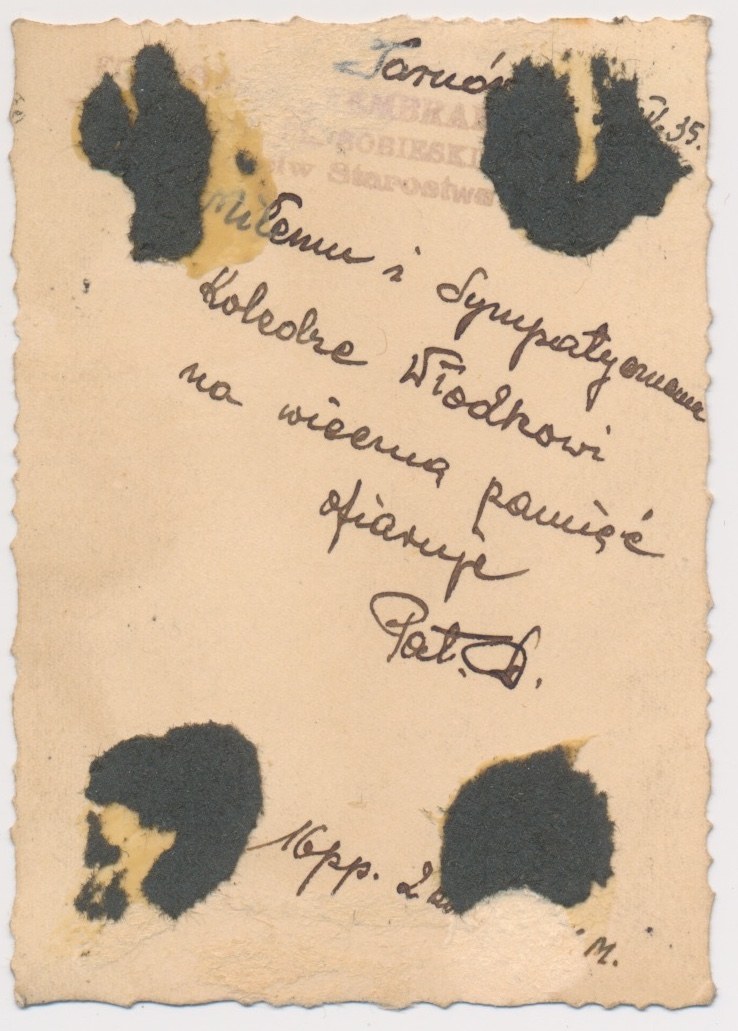 Tarnów
35.
SOBIESKI
Starostwa
Miłemu i Sympatycznemu
Koledze Włodkowi
na wieczną pamięć
ofiaruje
Pat. D.
16pp. 2
M.